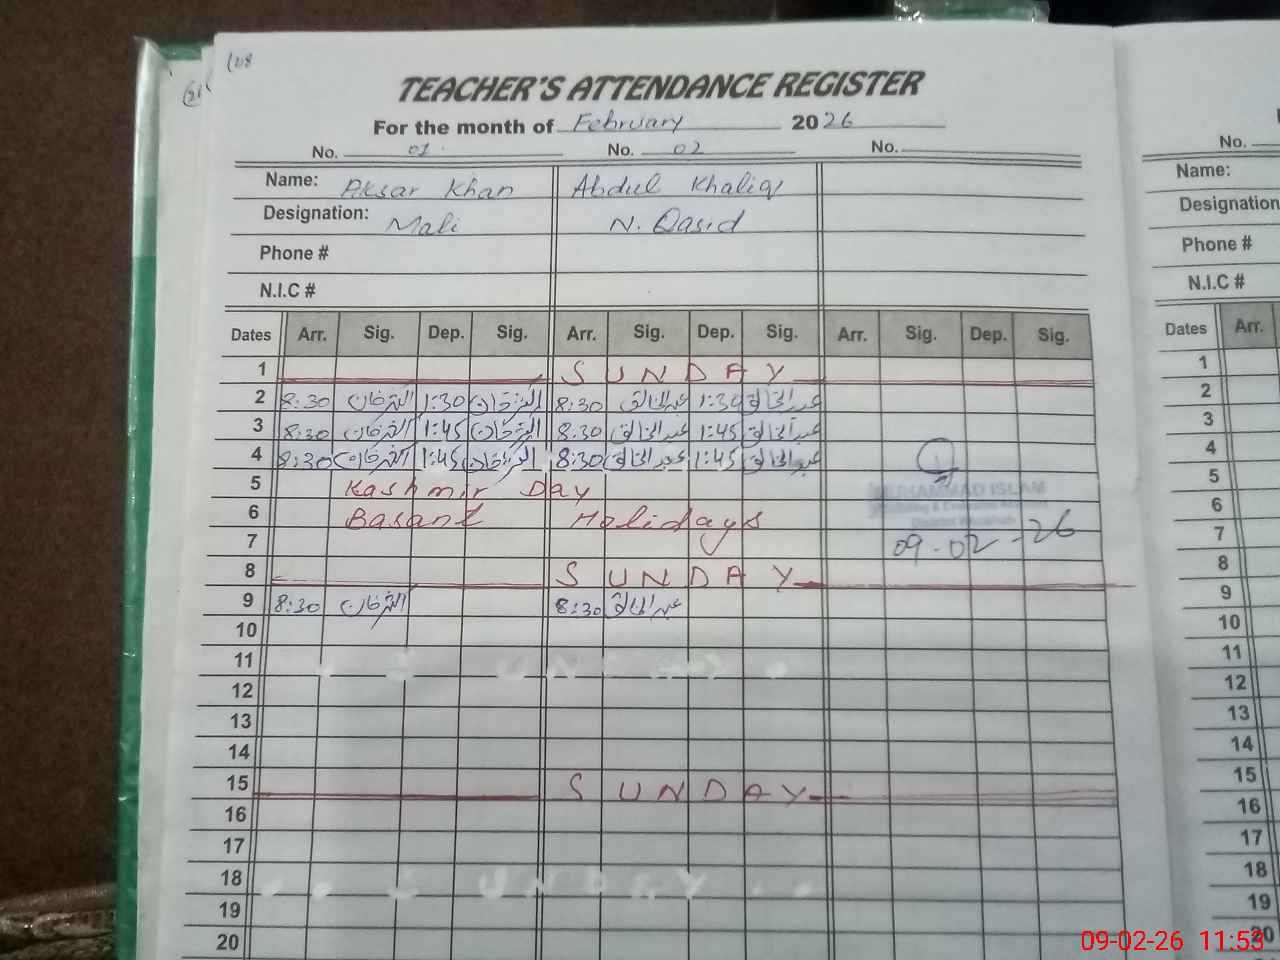 108
TEACHER'S ATTENDANCE REGISTER
For the month of February 2026
No. 01 No. 02 No.
Name: Khan Abdul Khaliq
Designation: Mali N. Qasid
Phone #
N.I.C #
Dates Arr. Sig. Dep. Sig. Arr. Sig. Dep. Sig. Arr. Sig. Dep. Sig.
1 SUNDAY
2 8:30 1:30 8:30 عبدالخالق 1:30 عبدالخالق
3 8:30 1:45 8:30 عبدالخالق 1:45 عبدالخالق
4 8:30 1:45 8:30 عبدالخالق 1:45 عبدالخالق
5 Kashmir Day
MUHAMMAD ISLAM
6 Basant Holidays
7 09-02-26
8 SUNDAY
9 8:30 8:30 عبدالخالق
10
11
12
13
14
15 SUNDAY
16
17
18
19
20
No.
Name:
Designation
Phone #
N.I.C #
Dates Arr.
1
2
3
4
5
6
7
8
9
10
11
12
13
14
15
16
17
18
19
20
09-02-26 11:53